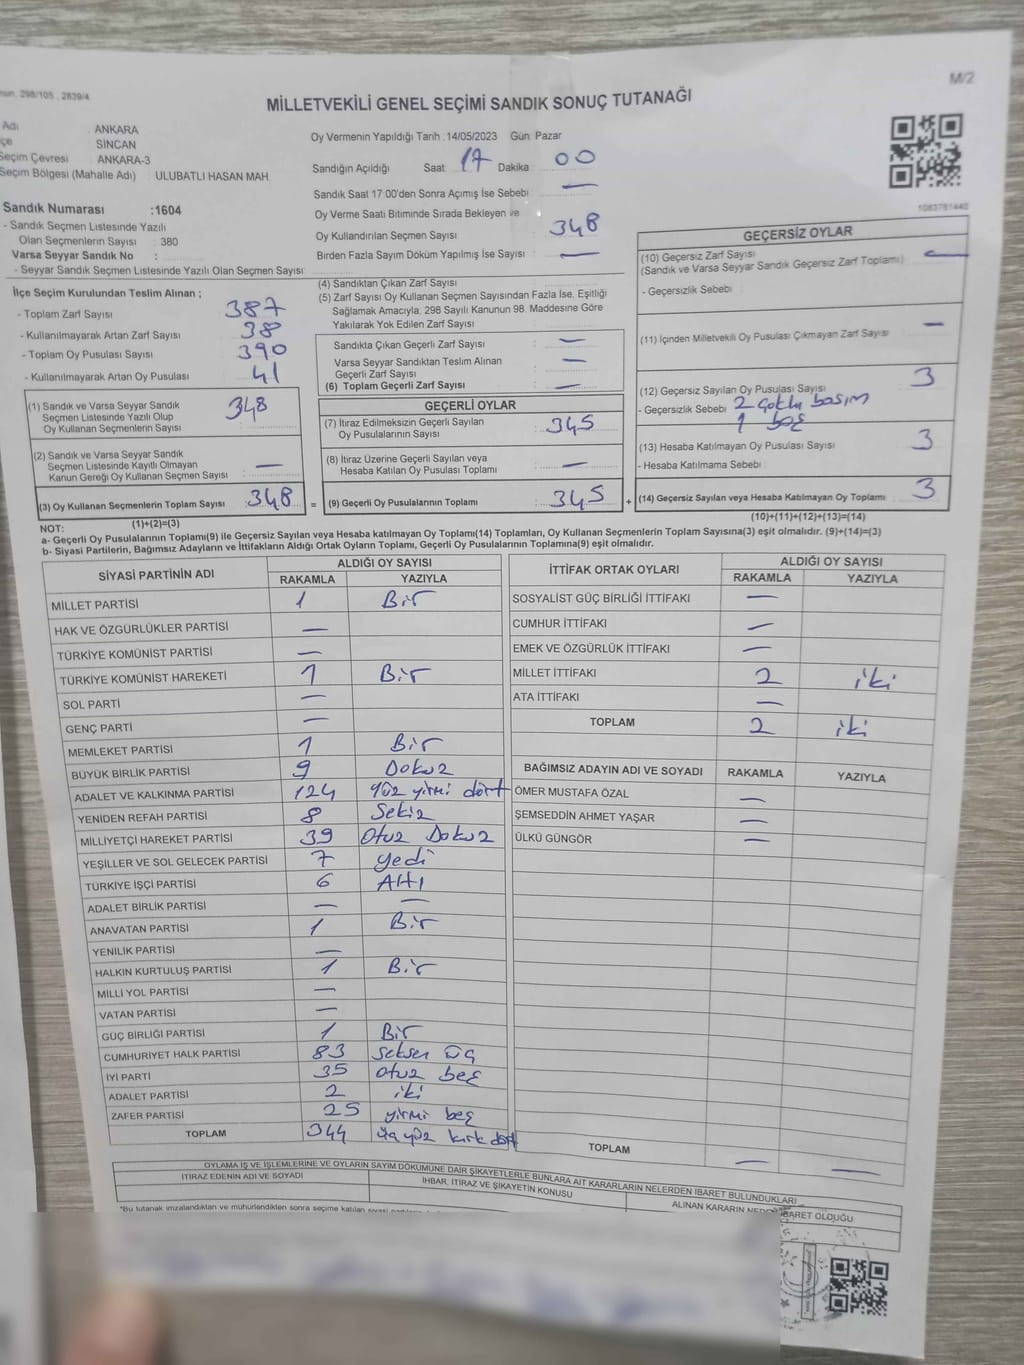 298/105 , 2839/4
M/2
MİLLETVEKİLİ GENEL SEÇİMİ SANDIK SONUÇ TUTANAĞI
Adı : ANKARA
SİNCAN
Seçim Çevresi : ANKARA-3
Seçim Bölgesi (Mahalle Adı) : ULUBATLI HASAN MAH
Sandık Numarası :1604
- Sandık Seçmen Listesinde Yazılı
Olan Seçmenlerin Sayısı : 380
Varsa Seyyar Sandık No :
- Seyyar Sandık Seçmen Listesinde Yazılı Olan Seçmen Sayısı :
Oy Vermenin Yapıldığı Tarih :14/05/2023 Gün Pazar
Sandığın Açıldığı Saat 17 Dakika : 00
Sandık Saat 17:00'den Sonra Açımış İse Sebebi : —
Oy Verme Saati Bitiminde Sırada Bekleyen ve
Oy Kullandırılan Seçmen Sayısı : 348
Birden Fazla Sayım Döküm Yapılmış İse Sayısı : —
1083781440
İlçe Seçim Kurulundan Teslim Alınan ;
- Toplam Zarf Sayısı : 387
- Kullanılmayarak Artan Zarf Sayısı : 38
- Toplam Oy Pusulası Sayısı : 390
- Kullanılmayarak Artan Oy Pusulası : 41
(1) Sandık ve Varsa Seyyar Sandık
Seçmen Listesinde Yazılı Olup
Oy Kullanan Seçmenlerin Sayısı : 348
(2) Sandık ve Varsa Seyyar Sandık
Seçmen Listesinde Kayıtlı Olmayan
Kanun Gereği Oy Kullanan Seçmen Sayısı : —
(3) Oy Kullanan Seçmenlerin Toplam Sayısı : 348 =
(4) Sandıktan Çıkan Zarf Sayısı :
(5) Zarf Sayısı Oy Kullanan Seçmen Sayısından Fazla İse, Eşitliği
Sağlamak Amacıyla, 298 Sayılı Kanunun 98. Maddesine Göre
Yakılarak Yok Edilen Zarf Sayısı :
Sandıkta Çıkan Geçerli Zarf Sayısı : —
Varsa Seyyar Sandıktan Teslim Alınan
Geçerli Zarf Sayısı : —
(6) Toplam Geçerli Zarf Sayısı : —
GEÇERLİ OYLAR
(7) İtiraz Edilmeksizin Geçerli Sayılan
Oy Pusulalarının Sayısı : 345
(8) İtiraz Üzerine Geçerli Sayılan veya
Hesaba Katılan Oy Pusulası Toplamı : —
(9) Geçerli Oy Pusulalarının Toplamı : 345 +
GEÇERSİZ OYLAR
(10) Geçersiz Zarf Sayısı : —
(Sandık ve Varsa Seyyar Sandık Geçersiz Zarf Toplamı)
- Geçersizlik Sebebi :
(11) İçinden Milletvekili Oy Pusulası Çıkmayan Zarf Sayısı : —
(12) Geçersiz Sayılan Oy Pusulası Sayısı : 3
- Geçersizlik Sebebi 2 Çoklu basım
1 boş
(13) Hesaba Katılmayan Oy Pusulası Sayısı : 3
- Hesaba Katılmama Sebebi :
(14) Geçersiz Sayılan veya Hesaba Katılmayan Oy Toplamı : 3
NOT: (1)+(2)=(3) (10)+(11)+(12)+(13)=(14)
a- Geçerli Oy Pusulalarının Toplamı(9) ile Geçersiz Sayılan veya Hesaba katılmayan Oy Toplamı(14) Toplamları, Oy Kullanan Seçmenlerin Toplam Sayısına(3) eşit olmalıdır. (9)+(14)=(3)
b- Siyasi Partilerin, Bağımsız Adayların ve İttifakların Aldığı Ortak Oyların Toplamı, Geçerli Oy Pusulalarının Toplamına(9) eşit olmalıdır.
SİYASİ PARTİNİN ADI ALDIĞI OY SAYISI
RAKAMLA YAZIYLA
MİLLET PARTİSİ 1 Bir
HAK VE ÖZGÜRLÜKLER PARTİSİ —
TÜRKİYE KOMÜNİST PARTİSİ —
TÜRKİYE KOMÜNİST HAREKETİ 1 Bir
SOL PARTİ —
GENÇ PARTİ —
MEMLEKET PARTİSİ 1 Bir
BÜYÜK BİRLİK PARTİSİ 9 Dokuz
ADALET VE KALKINMA PARTİSİ 124 Yüz yirmi dört
YENİDEN REFAH PARTİSİ 8 Sekiz
MİLLİYETÇİ HAREKET PARTİSİ 39 Otuz Dokuz
YEŞİLLER VE SOL GELECEK PARTİSİ 7 Yedi
TÜRKİYE İŞÇİ PARTİSİ 6 Altı
ADALET BİRLİK PARTİSİ — —
ANAVATAN PARTİSİ 1 Bir
YENİLİK PARTİSİ —
HALKIN KURTULUŞ PARTİSİ 1 Bir
MİLLİ YOL PARTİSİ —
VATAN PARTİSİ —
GÜÇ BİRLİĞİ PARTİSİ 1 Bir
CUMHURİYET HALK PARTİSİ 83 Seksen üç
İYİ PARTİ 35 otuz beş
ADALET PARTİSİ 2 iki
ZAFER PARTİSİ 25 yirmi beş
TOPLAM 344 üçyüz kırk dört
İTTİFAK ORTAK OYLARI ALDIĞI OY SAYISI
RAKAMLA YAZIYLA
SOSYALİST GÜÇ BİRLİĞİ İTTİFAKI —
CUMHUR İTTİFAKI —
EMEK VE ÖZGÜRLÜK İTTİFAKI —
MİLLET İTTİFAKI 2 iki
ATA İTTİFAKI —
TOPLAM 2 iki
BAĞIMSIZ ADAYIN ADI VE SOYADI RAKAMLA YAZIYLA
ÖMER MUSTAFA ÖZAL —
ŞEMSEDDİN AHMET YAŞAR —
ÜLKÜ GÜNGÖR —
TOPLAM — —
OYLAMA İŞ VE İŞLEMLERİNE VE OYLARIN SAYIM DÖKÜMÜNE DAİR ŞİKAYETLERLE BUNLARA AİT KARARLARIN NELERDEN İBARET BULUNDUKLARI
İTİRAZ EDENİN ADI VE SOYADI İHBAR, İTİRAZ VE ŞİKAYETİN KONUSU ALINAN KARARIN İBARET OLDUĞU
"Bu tutanak imzalandıktan ve mühürlendikten sonra seçime katılan siyasi